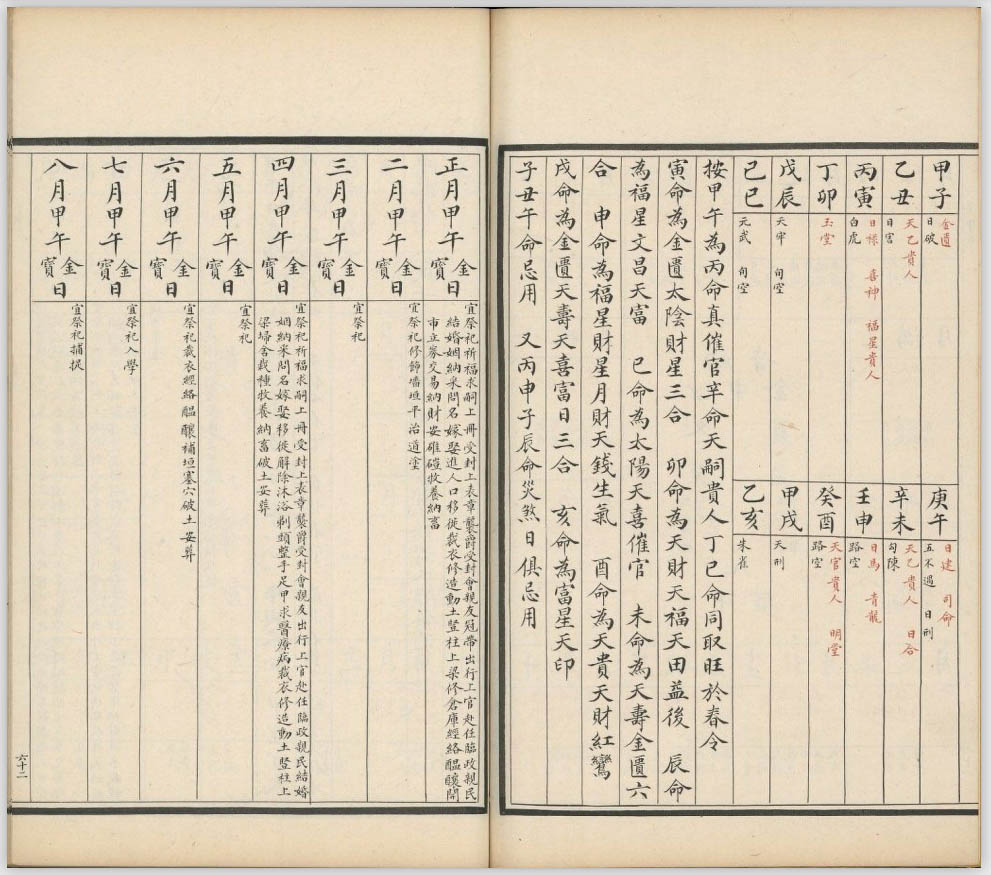 甲子
金匱
日破
乙丑
天乙貴人
日害
丙寅
日祿 喜神 福星貴人
白虎
丁卯
玉堂
戊辰
天牢 旬空
己巳
元武 旬空
庚午
日建 司命
五不遇 日刑
辛未
天乙貴人 日合
勾陳
壬申
日馬 青龍
路空
癸酉
天官貴人 明堂
路空
甲戌
天刑
乙亥
朱雀
按甲午為丙命真催官辛命天嗣貴人丁巳命同取旺於春令
寅命為金匱太陰財星三合 卯命為天財天福天田益後 辰命
為福星文昌天富 巳命為太陽天喜催官 未命為天壽金匱六
合 申命為福星財星月財天錢生氣 酉命為天貴天財紅鸞
戌命為金匱天壽天喜富日三合 亥命為富星天印
子丑午命忌用 又丙申子辰命災煞日俱忌用
正月甲午金寶日
宜祭祀祈福求嗣上冊受封上表章襲爵受封會親友冠帶出行上官赴任臨政親民
結婚姻納采問名嫁娶進人口移徙裁衣修造動土豎柱上梁修倉庫經絡醞釀開
市立券交易納財安碓磑牧養納畜
二月甲午金寶日
宜祭祀修飾墻垣平治道塗
三月甲午金寶日
宜祭祀
四月甲午金寶日
宜祭祀祈福求嗣上冊受封上表章襲爵受封會親友出行上官赴任臨政親民結婚
姻納采問名嫁娶移徙解除沐浴剃頭整手足甲求醫療病裁衣修造動土豎柱上
梁掃舍栽種牧養納畜破土安葬
五月甲午金寶日
宜祭祀
六月甲午金寶日
宜祭祀裁衣經絡醞釀補垣塞穴破土安葬
七月甲午金寶日
宜祭祀入學
八月甲午金寶日
宜祭祀捕捉
六十二